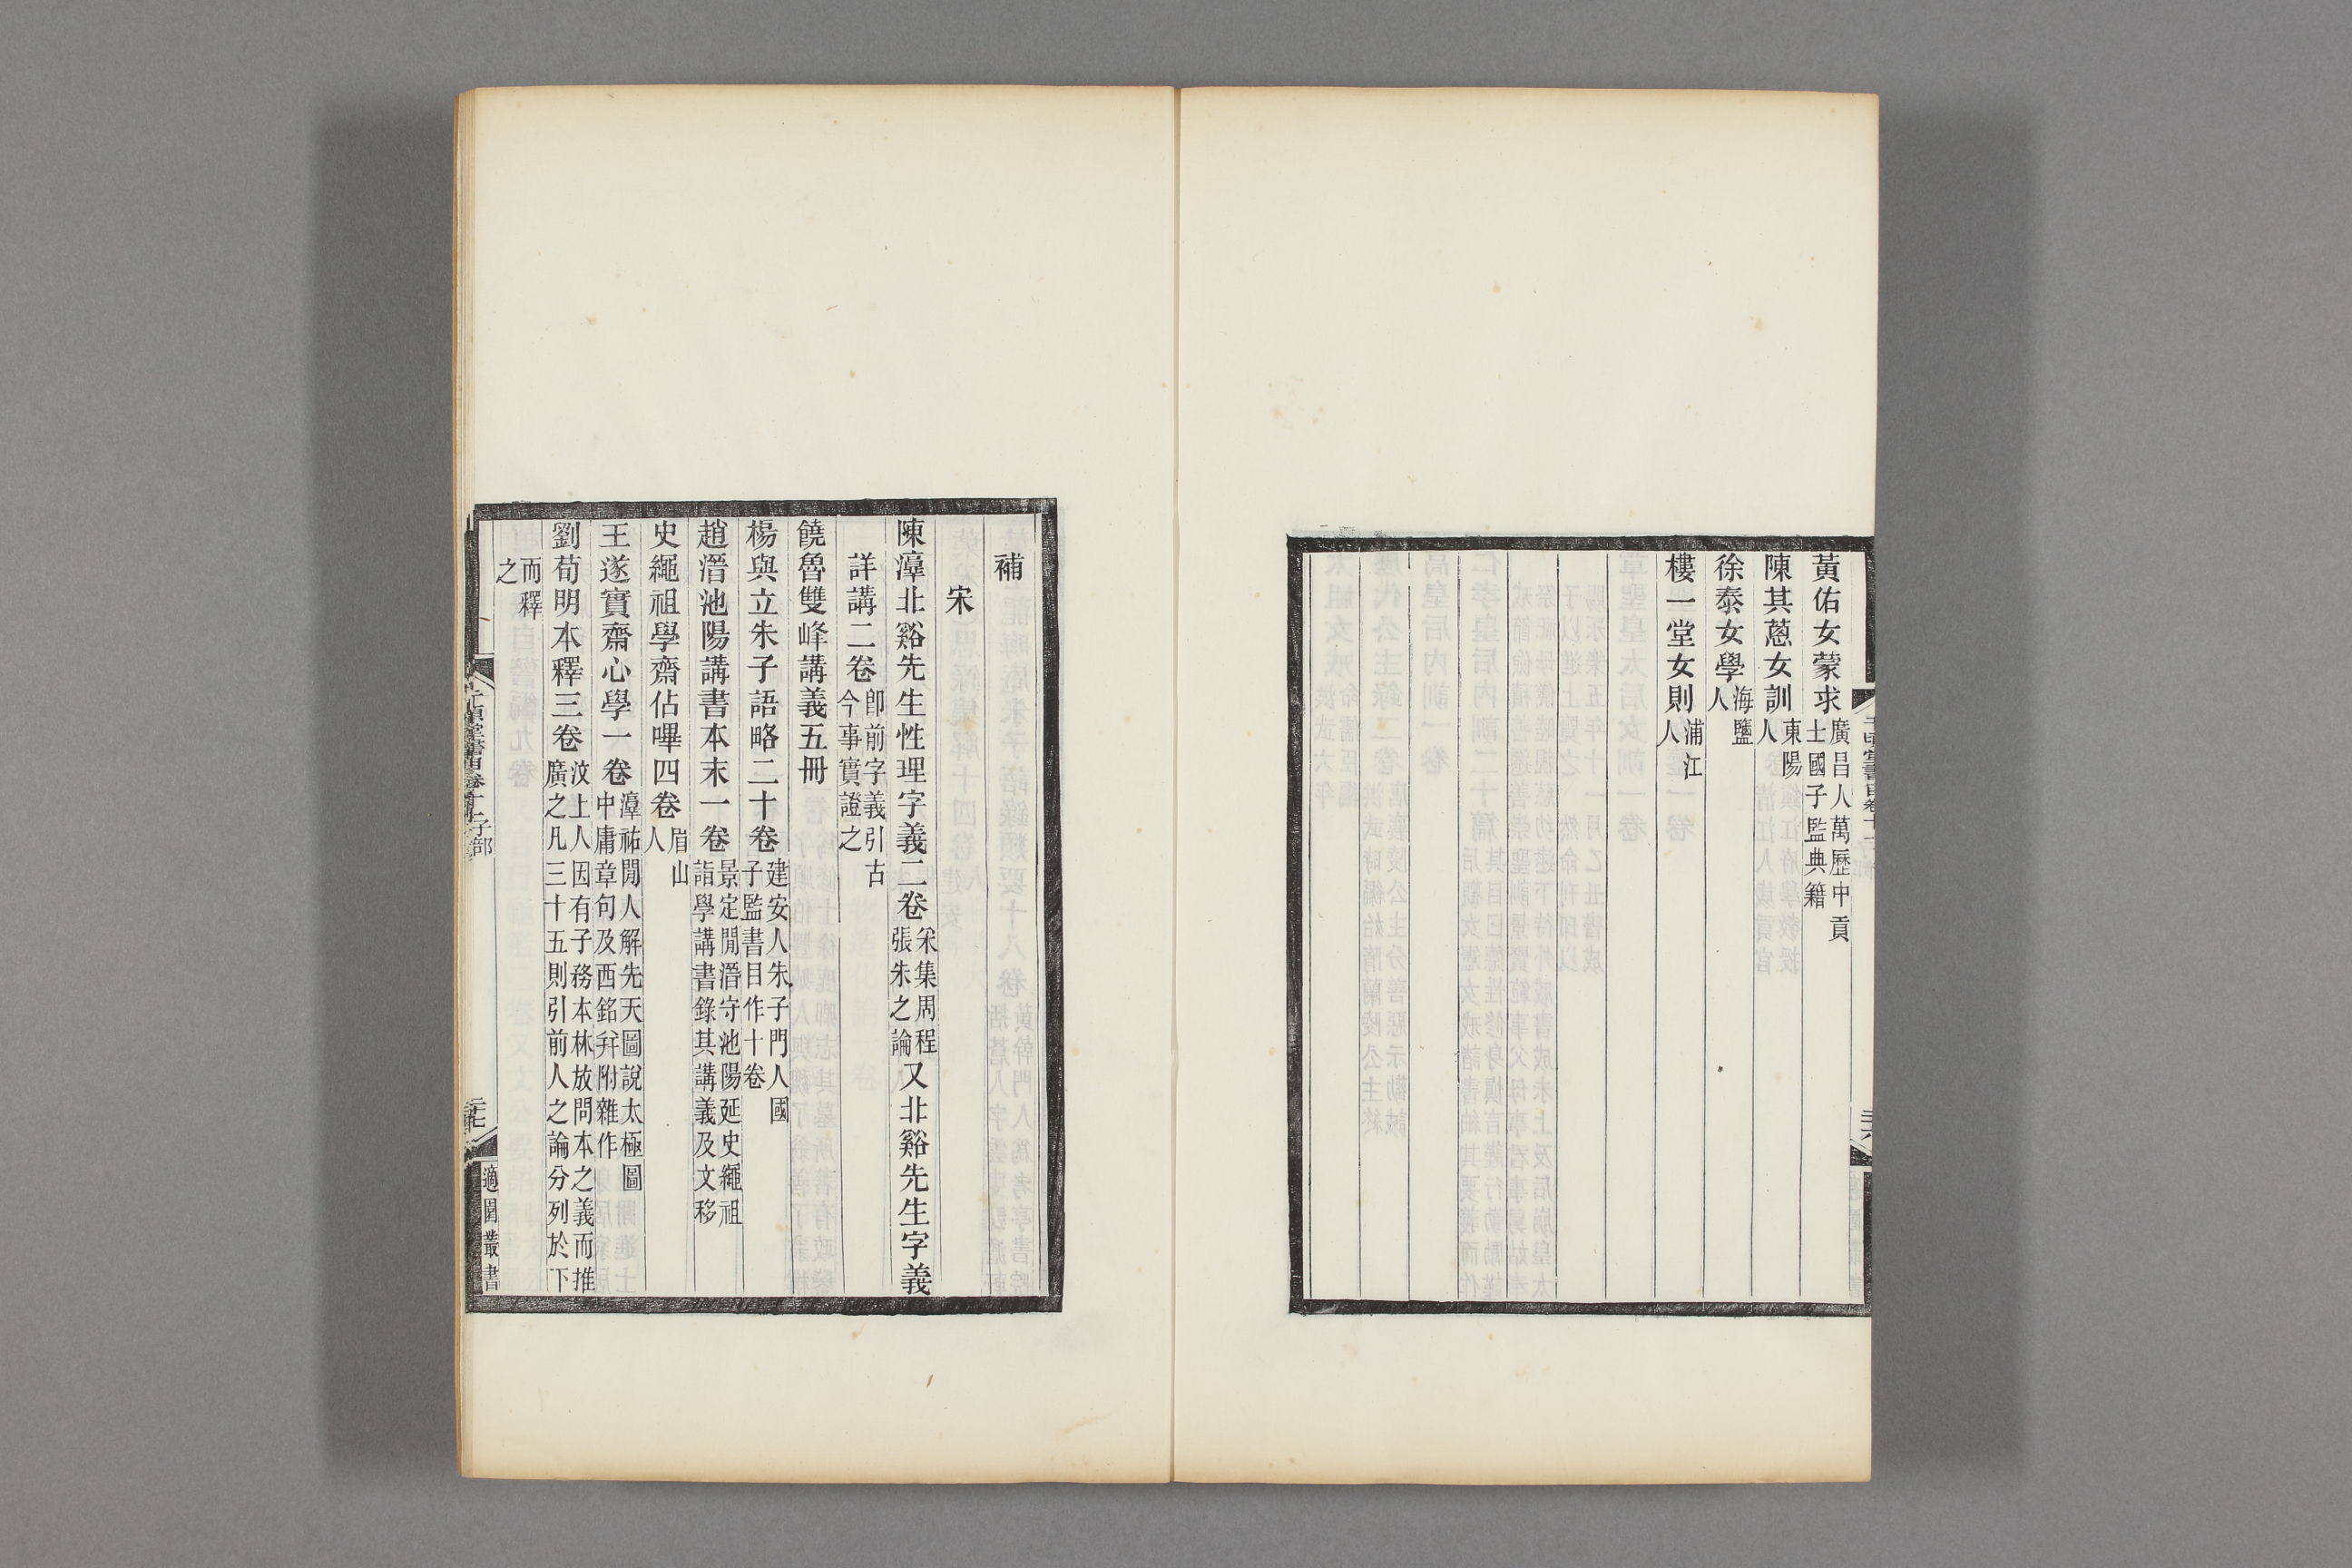 黃佑女蒙求廣昌人萬歷中貢士國子監典籍
陳其蒽女訓東陽人
徐泰女學海鹽人
樓一堂女則浦江人
補
宋
陳漳北谿先生性理字義二卷采集周程張朱之論又北谿先生字義
詳講二卷卽前字義引古今事實證之
饒魯雙峰講義五冊
楊與立朱子語略二十卷建安人朱子門人國子監書目作十卷
趙潛池陽講書本末一卷景定閒潛守池陽延史繩祖詣學講書錄其講義及文移
史繩祖學齋佔嗶四卷眉山人
王遂實齋心學一卷漳祐閒人解先天圖說太極圖中庸章句及西銘幷附雜作
劉荀明本釋三卷汶上人因有子務本林放問本之義而推廣之凡三十五則引前人之論分列於下
而釋之
千頃堂書目卷十一子部
三十七
適園叢書